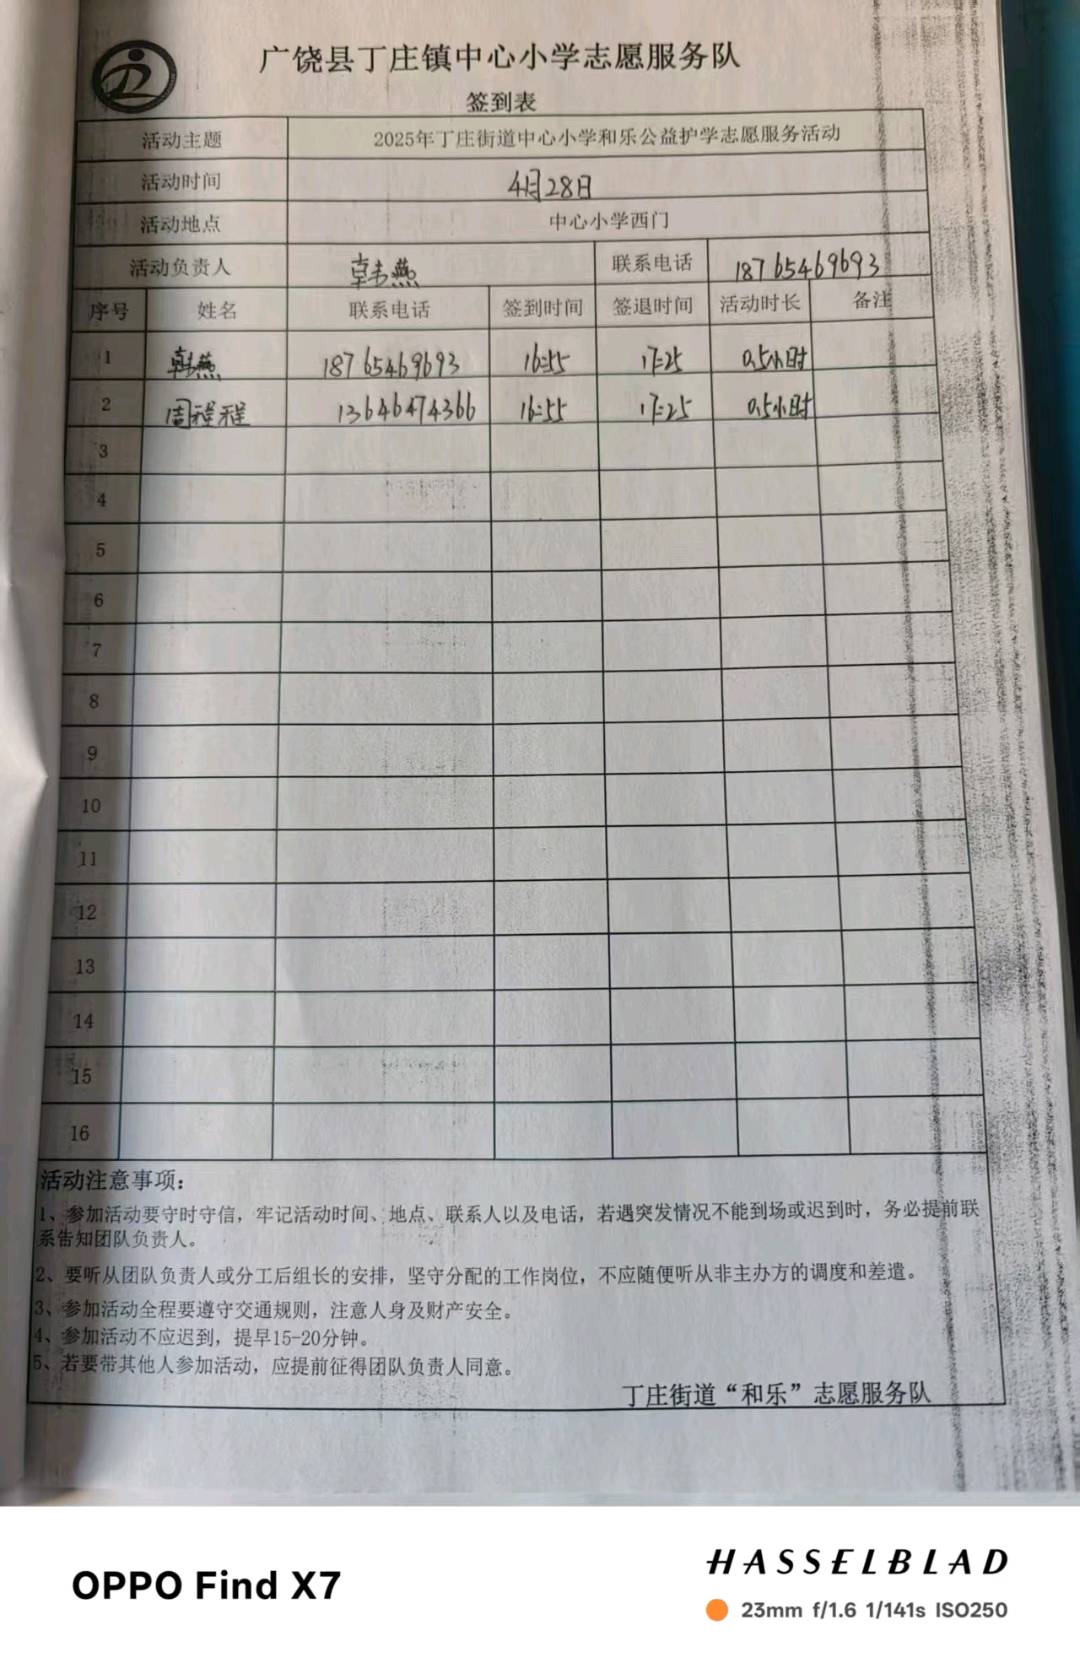 广饶县丁庄镇中心小学志愿服务队
签到表
活动主题 2025年丁庄街道中心小学和乐公益护学志愿服务活动
活动时间 4月28日
活动地点 中心小学西门
活动负责人 韩燕 联系电话 18765469693
序号 姓名 联系电话 签到时间 签退时间 活动时长 备注
1 韩燕 18765469693 16:55 17:25 0.5小时
2 周程程 13646474366 16:55 17:25 0.5小时
3
4
5
6
7
8
9
10
11
12
13
14
15
16
活动注意事项：
1、参加活动要守时守信，牢记活动时间、地点、联系人以及电话，若遇突发情况不能到场或迟到时，务必提前联
系告知团队负责人。
2、要听从团队负责人或分工后组长的安排，坚守分配的工作岗位，不应随便听从非主办方的调度和差遣。
3、参加活动全程要遵守交通规则，注意人身及财产安全。
4、参加活动不应迟到，提早15-20分钟。
5、若要带其他人参加活动，应提前征得团队负责人同意。
丁庄街道“和乐”志愿服务队
OPPO Find X7
HASSELBLAD
23mm f/1.6 1/141s ISO250